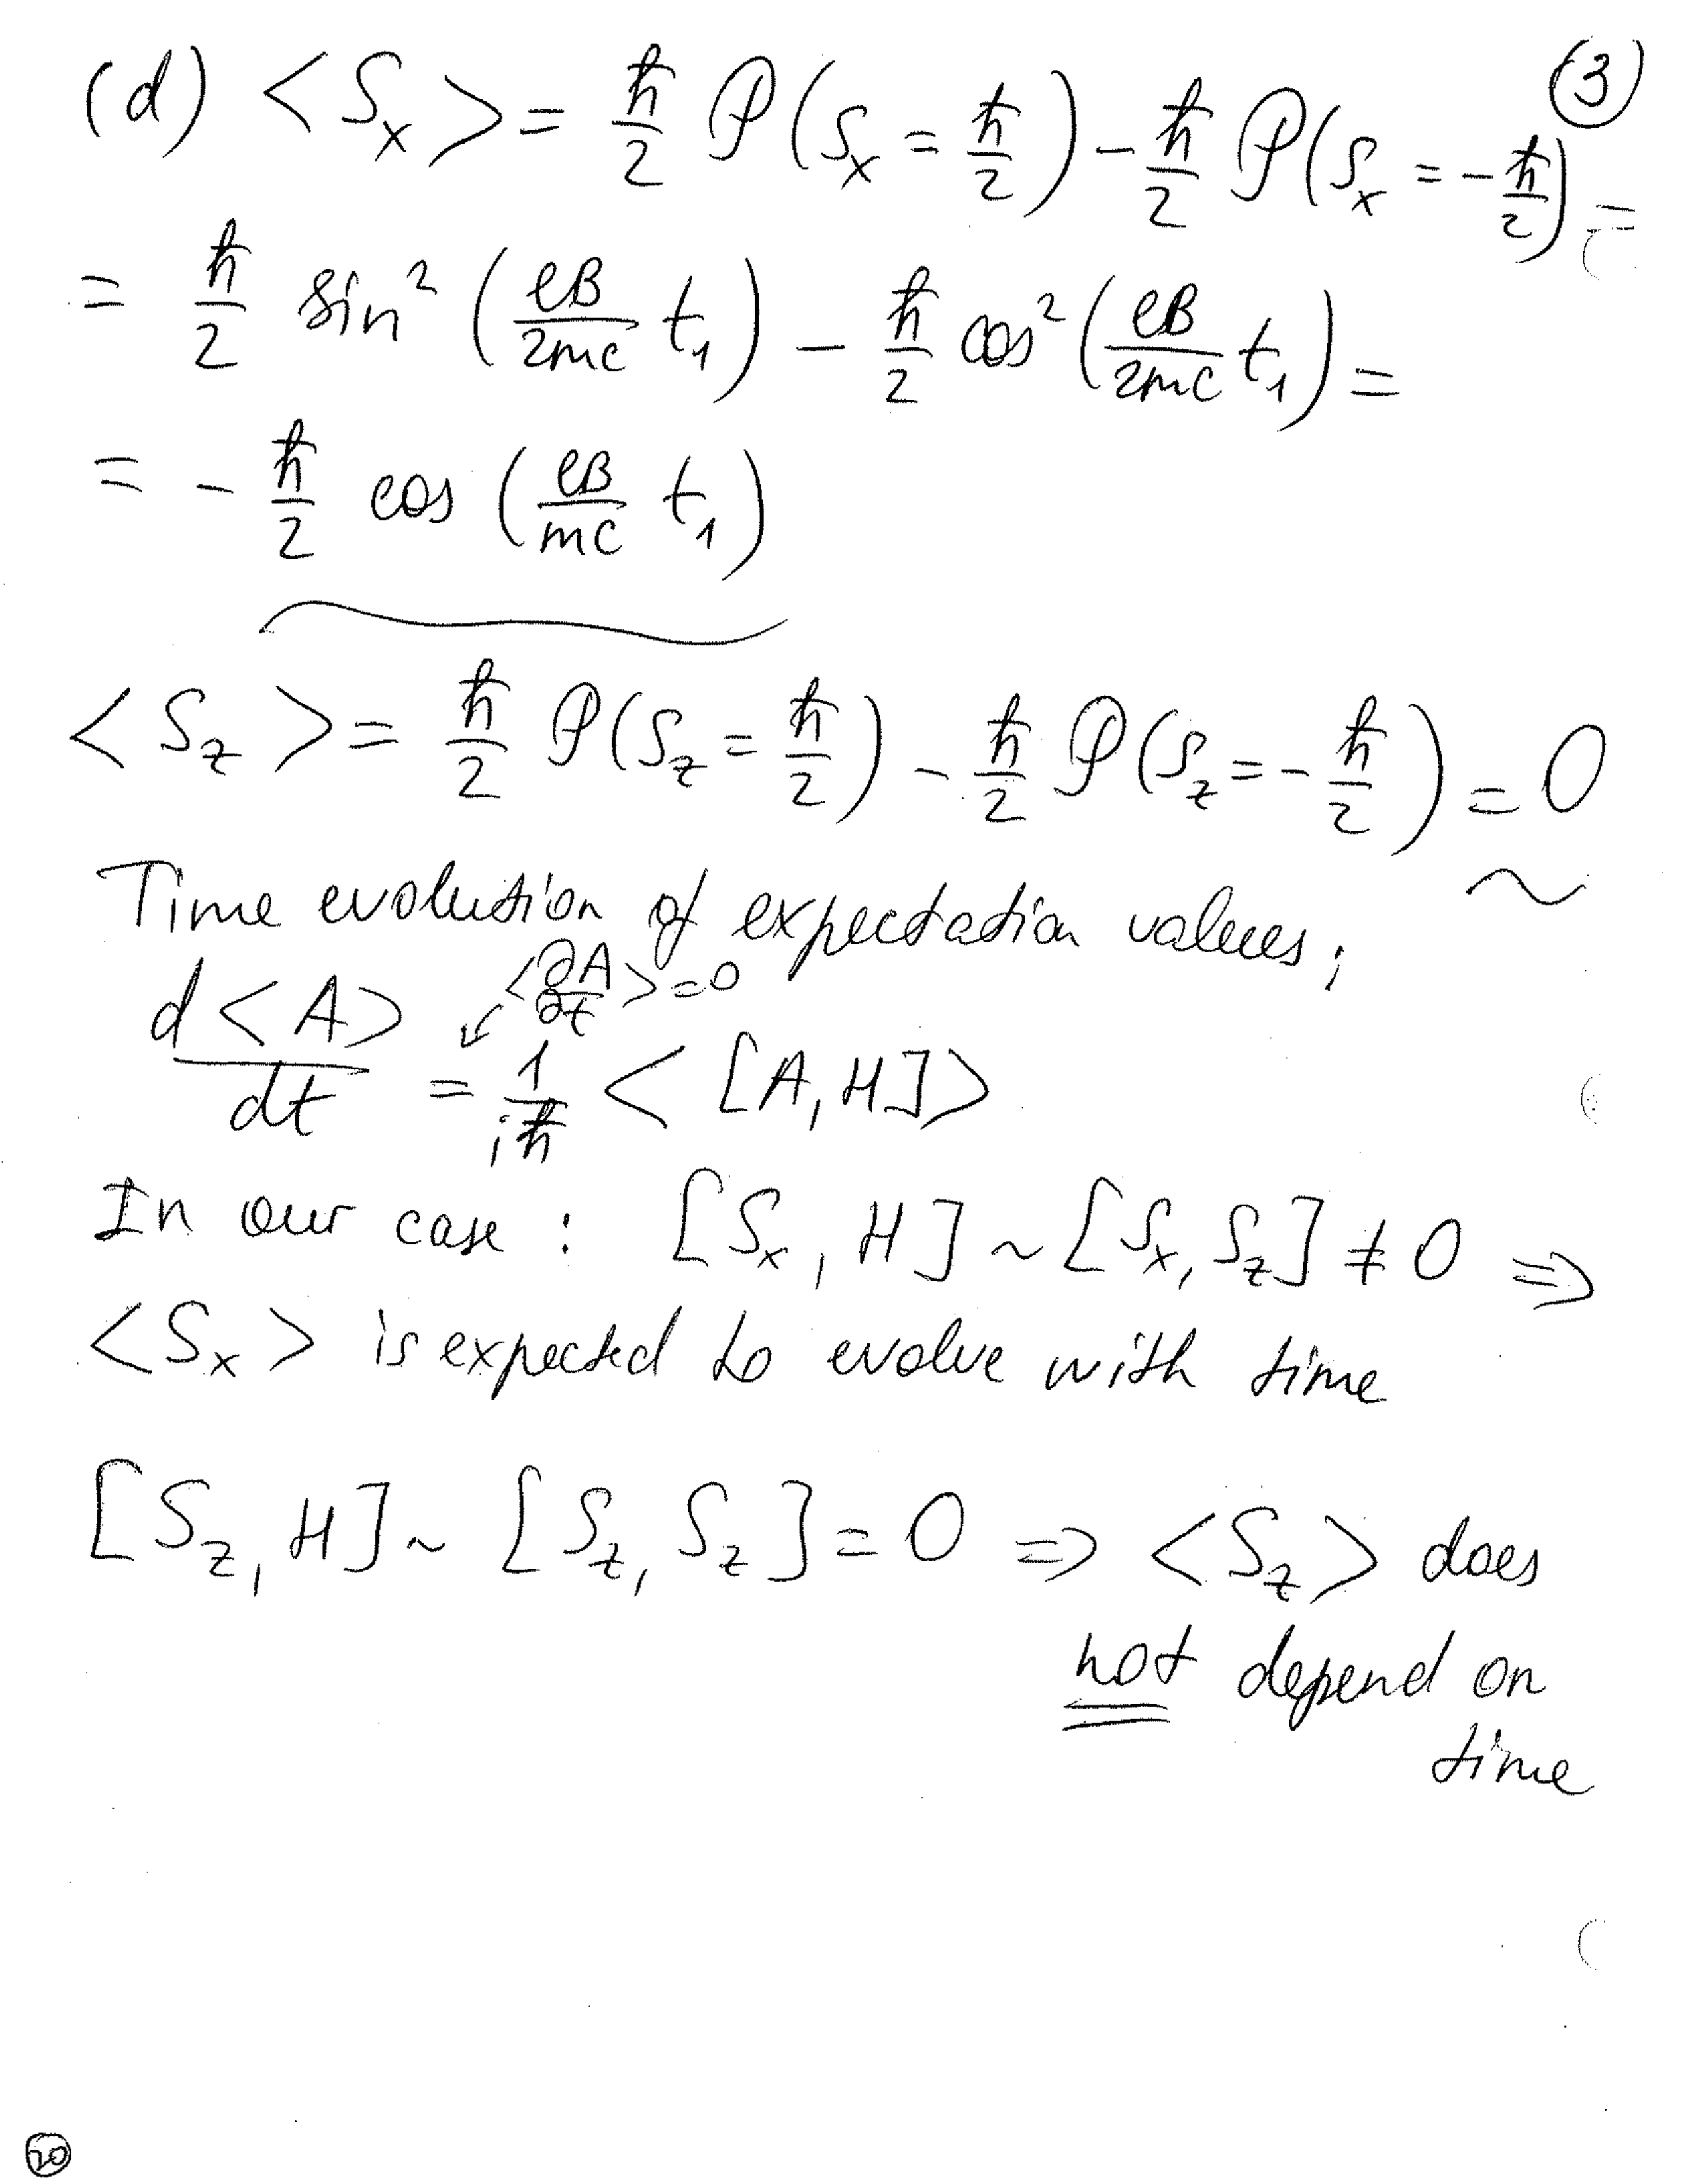 (3)
(d) <S_x> = ℏ/2 P(S_x = ℏ/2) - ℏ/2 P(S_x = -ℏ/2) =
= ℏ/2 sin² (eB/2mc t₁) - ℏ/2 cos² (eB/2mc t₁) =
= - ℏ/2 cos (eB/mc t₁)
<S_z> = ℏ/2 P(S_z = ℏ/2) - ℏ/2 P(S_z = -ℏ/2) = 0
Time evolution of expectation values;
<∂A/∂t> = 0
d<A>/dt = 1/iℏ <[A, H]>
In our case : [S_x, H] ~ [S_x, S_z] ≠ 0 ⇒
<S_x> is expected to evolve with time
[S_z, H] ~ [S_z, S_z] = 0 ⇒ <S_z> does
not depend on
time
20